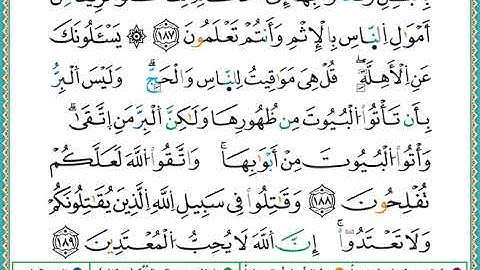 أَمْوَالِ النَّاسِ بِالْإِثْمِ وَأَنْتُمْ تَعْلَمُونَ ۝١٨٧ يَسْـَٔلُونَكَ
عَنِ الْأَهِلَّةِ ۖ قُلْ هِىَ مَوَاقِيتُ لِلنَّاسِ وَالْحَجِّ ۗ وَلَيْسَ الْبِرُّ
بِأَنْ تَأْتُوا الْبُيُوتَ مِنْ ظُهُورِهَا وَلَٰكِنَّ الْبِرَّ مَنِ اتَّقَىٰ ۗ
وَأْتُوا الْبُيُوتَ مِنْ أَبْوَابِهَا ۚ وَاتَّقُوا اللَّهَ لَعَلَّكُمْ
تُفْلِحُونَ ۝١٨٨ وَقَاتِلُوا فِى سَبِيلِ اللَّهِ الَّذِينَ يُقَاتِلُونَكُمْ
وَلَا تَعْتَدُوا ۚ إِنَّ اللَّهَ لَا يُحِبُّ الْمُعْتَدِينَ ۝١٨٩